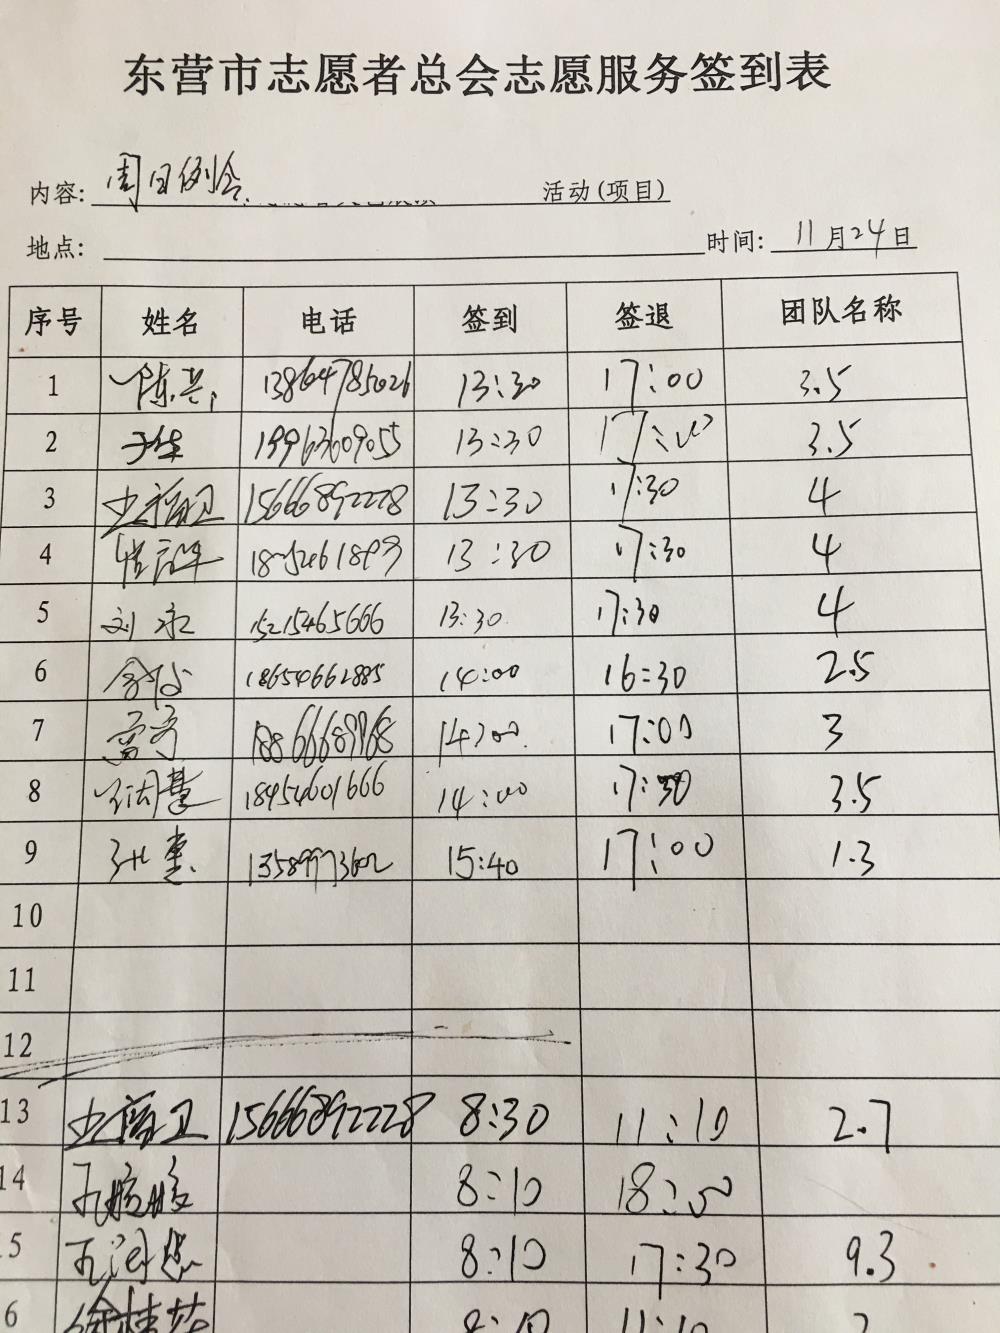 东营市志愿者总会志愿服务签到表
内容: 周日例会 活动(项目)
地点: 时间: 11月24日
序号 姓名 电话 签到 签退 团队名称
1 13864785026 13:30 17:00 3.5
2 19963609055 13:30 17:00 3.5
3 15666892228 13:30 17:30 4
4 13:30 17:30 4
5 刘永 15215465666 13:30 17:30 4
6 18654662885 14:00 16:30 2.5
7 18866689968 14:00 17:00 3
8 18454601666 14:00 17:30 3.5
9 13589973602 15:40 17:00 1.3
10
11
12
13 15666892228 8:30 11:10 2.7
14 8:10 18:00
5 8:10 17:30 9.3
6 徐桂花 8:10 11:10